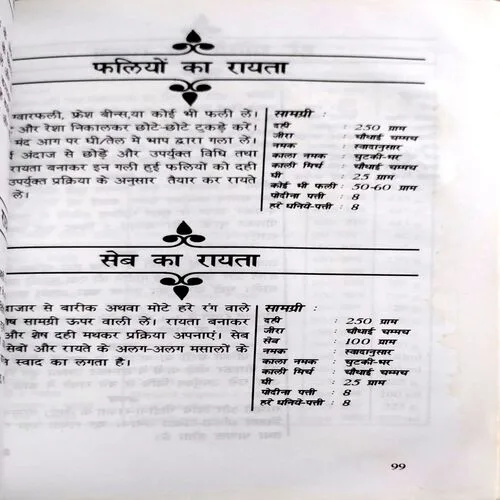 फलियों का रायता
ग्वारफली, फ्रेश बीन्स,या कोई भी फली लें।
और रेशा निकालकर छोटे-छोटे टुकड़े करें।
मंद आग पर घी/तेल में भाप द्वारा गला लें।
अंदाज से छोड़ें और उपर्युक्त विधि तथा
रायता बनाकर इन गली हुई फलियों को दही
उपर्युक्त प्रक्रिया के अनुसार तैयार कर रायते
लें।
सामग्री :
दही : 250 ग्राम
जीरा : चौथाई चम्मच
नमक : स्वादानुसार
काला नमक : चुटकी-भर
काली मिर्च : चौथाई चम्मच
घी : 25 ग्राम
कोई भी फली : 50-60 ग्राम
पोदीना पत्ती : 8
हरे धनिये-पत्ती : 8
सेब का रायता
बाजार से बारीक अथवा मोटे हरे रंग वाले
सामग्री ऊपर वाली लें। रायता बनाकर
और शेष दही मथकर प्रक्रिया अपनाएं। सेब
सेबों और रायते के अलग-अलग मसालों के
स्वाद का लगता है।
सामग्री :
दही : 250 ग्राम
जीरा : चौथाई चम्मच
सेब : 100 ग्राम
नमक : स्वादानुसार
काला नमक : चुटकी-भर
काली मिर्च : चौथाई चम्मच
घी : 25 ग्राम
पोदीना पत्ती : 8
हरे धनिये-पत्ती : 8
99